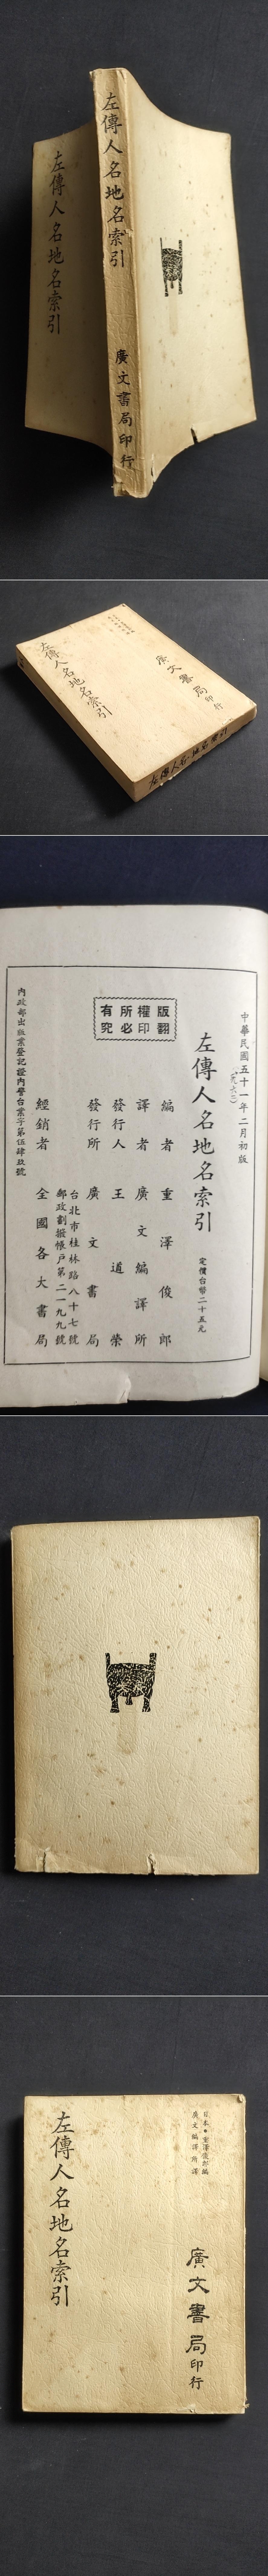 左傳人名地名索引
廣文書局印行
左傳人名地名索引
左傳人名地名索引
廣文書局印行
左傳人名地名索引
中華民國五十一年二月初版
(一九六二)
左傳人名地名索引
定價台幣二十五元
版權所有
翻印必究
編者 重澤俊郎
譯者 廣文編譯所
發行人 王道榮
發行所 廣文書局
台北市桂林路八十七號
郵政劃撥帳戶第二一九九號
經銷者 全國各大書局
內政部出版業登記證內警台業字第伍肆玖號
日本●重澤俊郎編
廣文編譯所譯
廣文書局印行
左傳人名地名索引